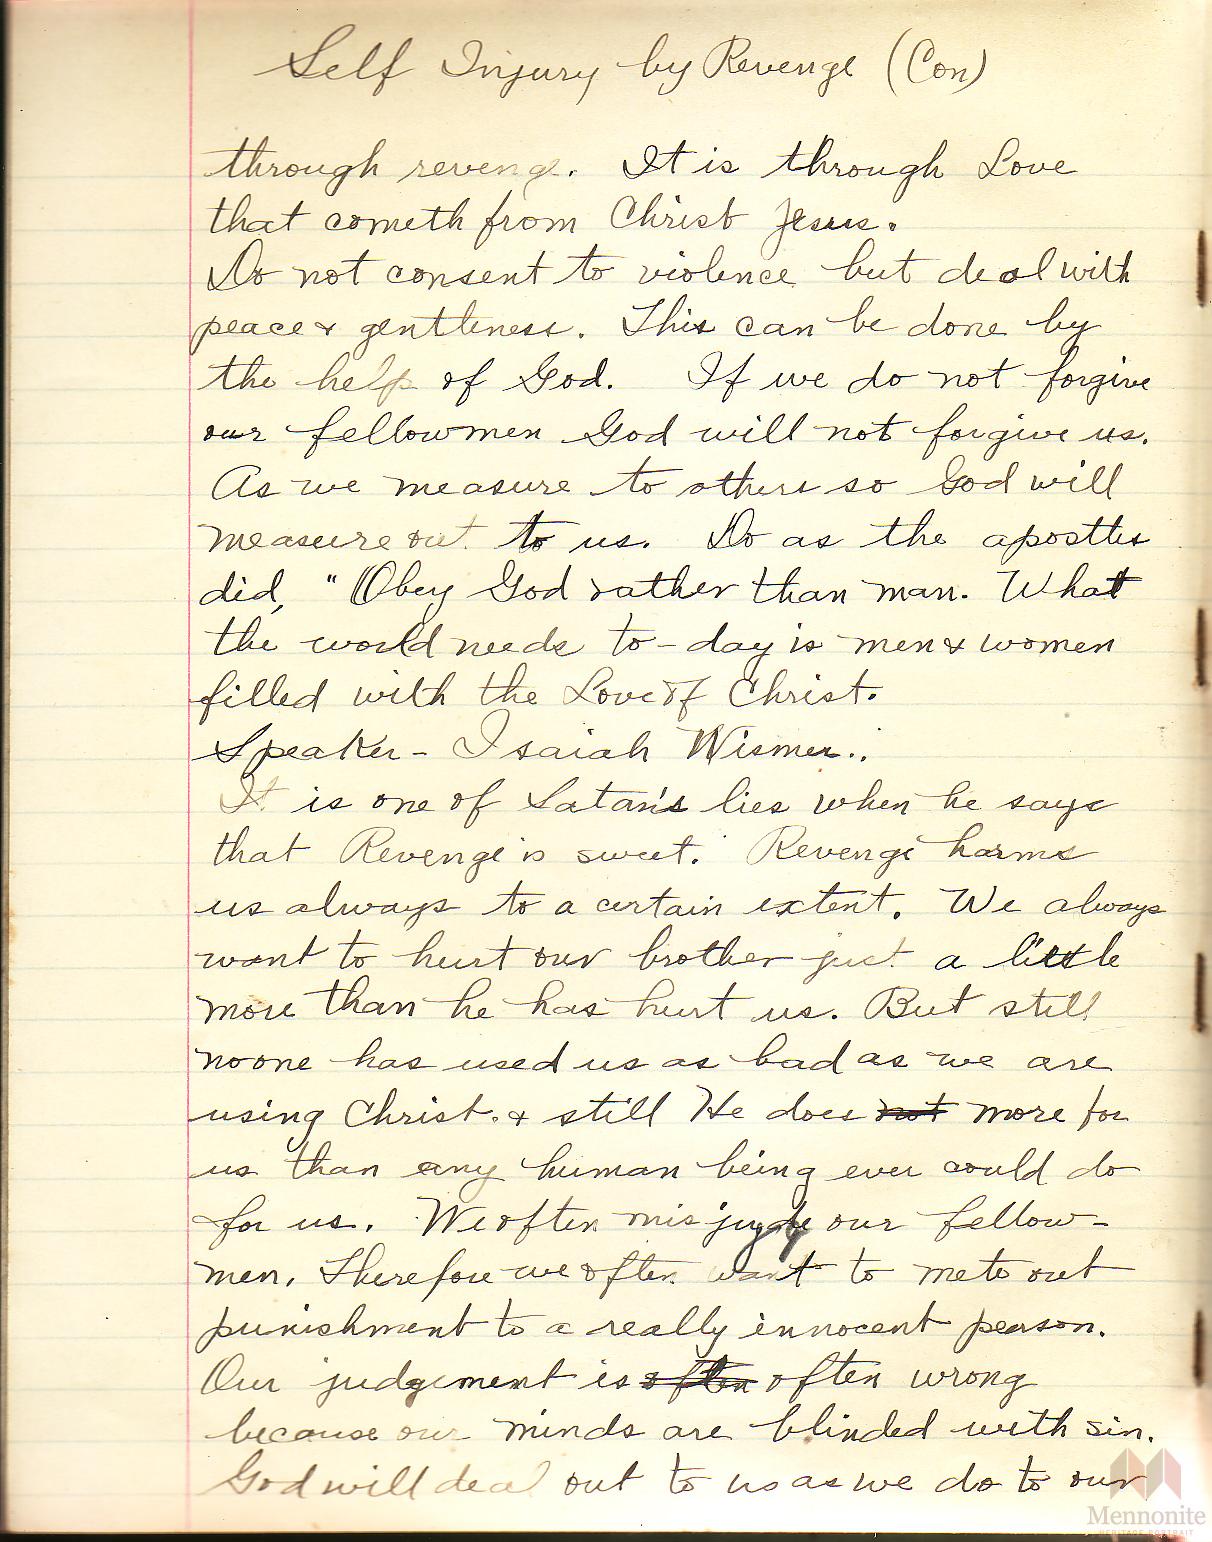 Self Injury by Revenge (Con)
through revenge. It is through Love
that cometh from Christ Jesus.
Do not consent to violence but deal with
peace & gentleness. This can be done by
the help of God. If we do not forgive
our fellowmen God will not forgive us.
As we measure to others so God will
measure out to us. Do as the apostles
did, "Obey God rather than man. What
the world needs to-day is men & women
filled with the Love of Christ.
Speaker - Isaiah Wismer..
It is one of Satan's lies when he says
that Revenge is sweet. Revenge harms
us always to a certain extent. We always
want to hurt our brother just a little
more than he has hurt us. But still
no one has used us as bad as we are
using Christ. & still He does not more for
us than any human being ever could do
for us. We often misjudge our fellow-
men. Therefore we often want to mete out
punishment to a really innocent person.
Our judgement is often often wrong
because our minds are blinded with sin.
God will deal out to us as we do to our
Mennonite
HERITAGE PORTRAIT